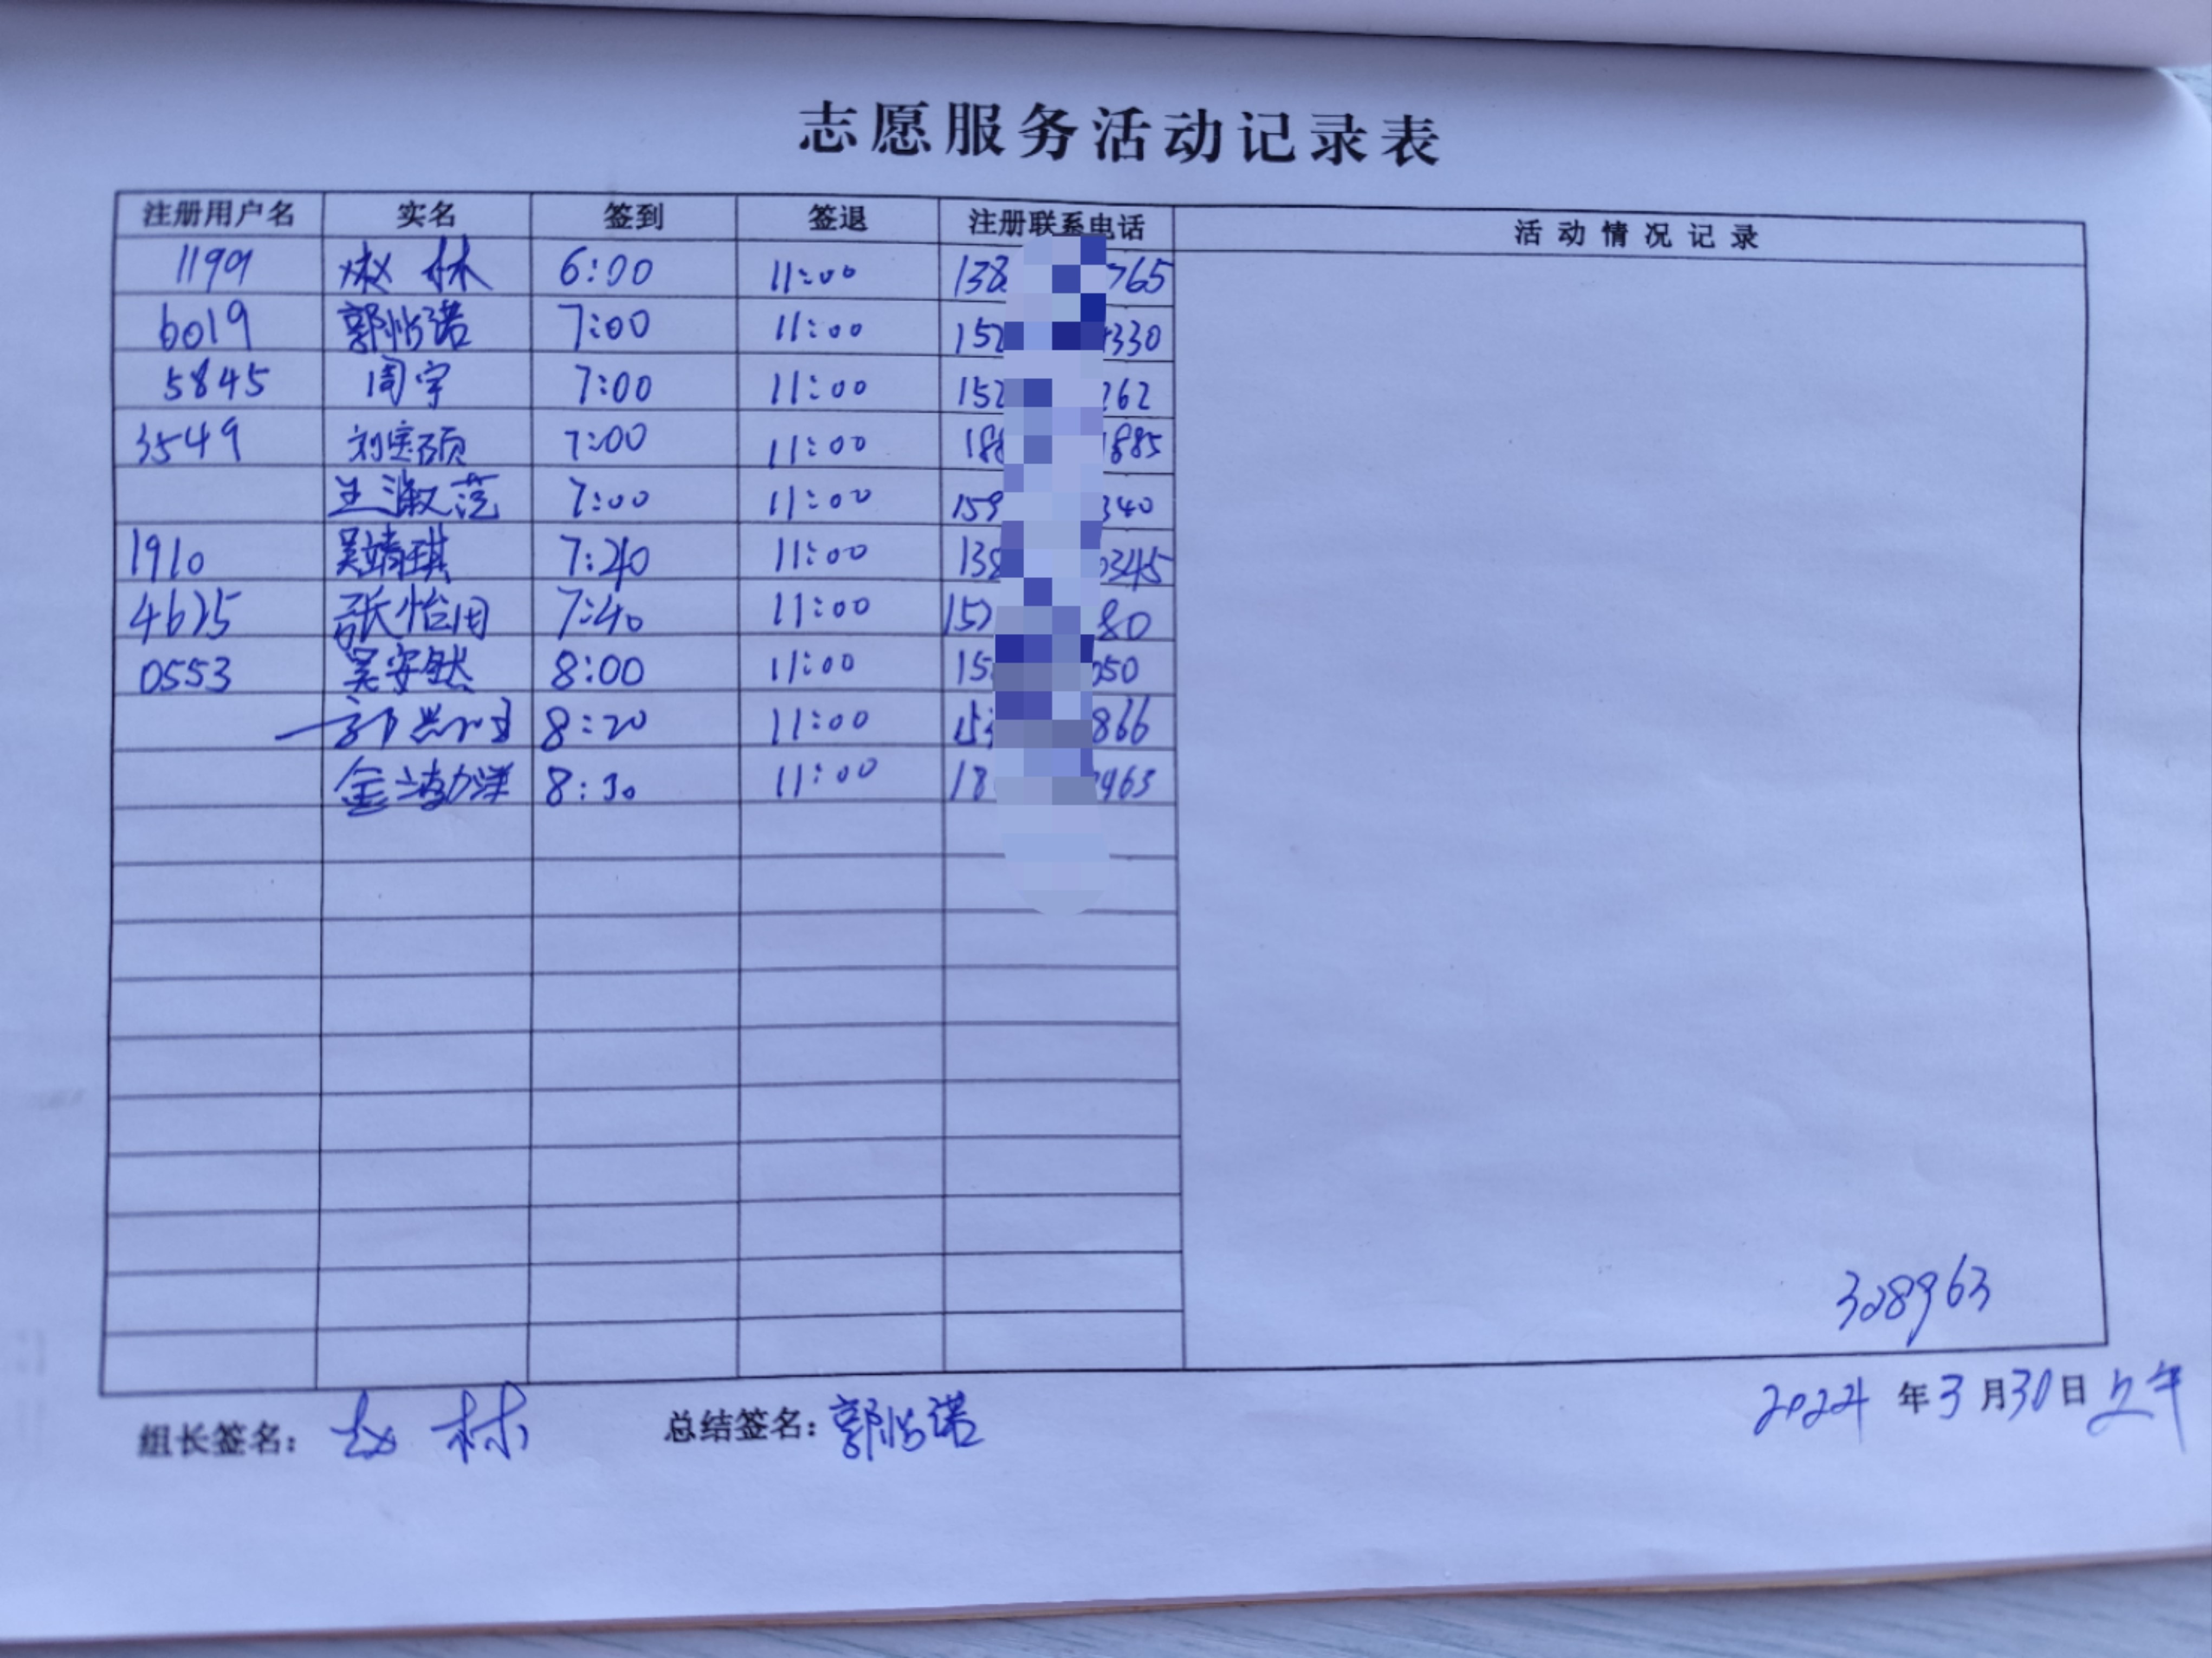 志愿服务活动记录表
注册用户名 实名 签到 签退 注册联系电话 活动情况记录
1199 赵林 6:00 11:00 138 765
6019 郭怡诺 7:00 11:00 152 330
5845 周宇 7:00 11:00 152 262
3549 刘宝硕 7:00 11:00 188 1885
王淑范 7:00 11:00 159 340
1910 吴靖琪 7:40 11:00 138 0345
张怡 7:40 11:00 80
0553 吴安然 8:00 11:00 15 050
8:20 11:00 866
金 8:30 11:00 18 963
328963
组长签名: 赵林 总结签名: 郭怡诺 2024 年 3 月 30 日 上午